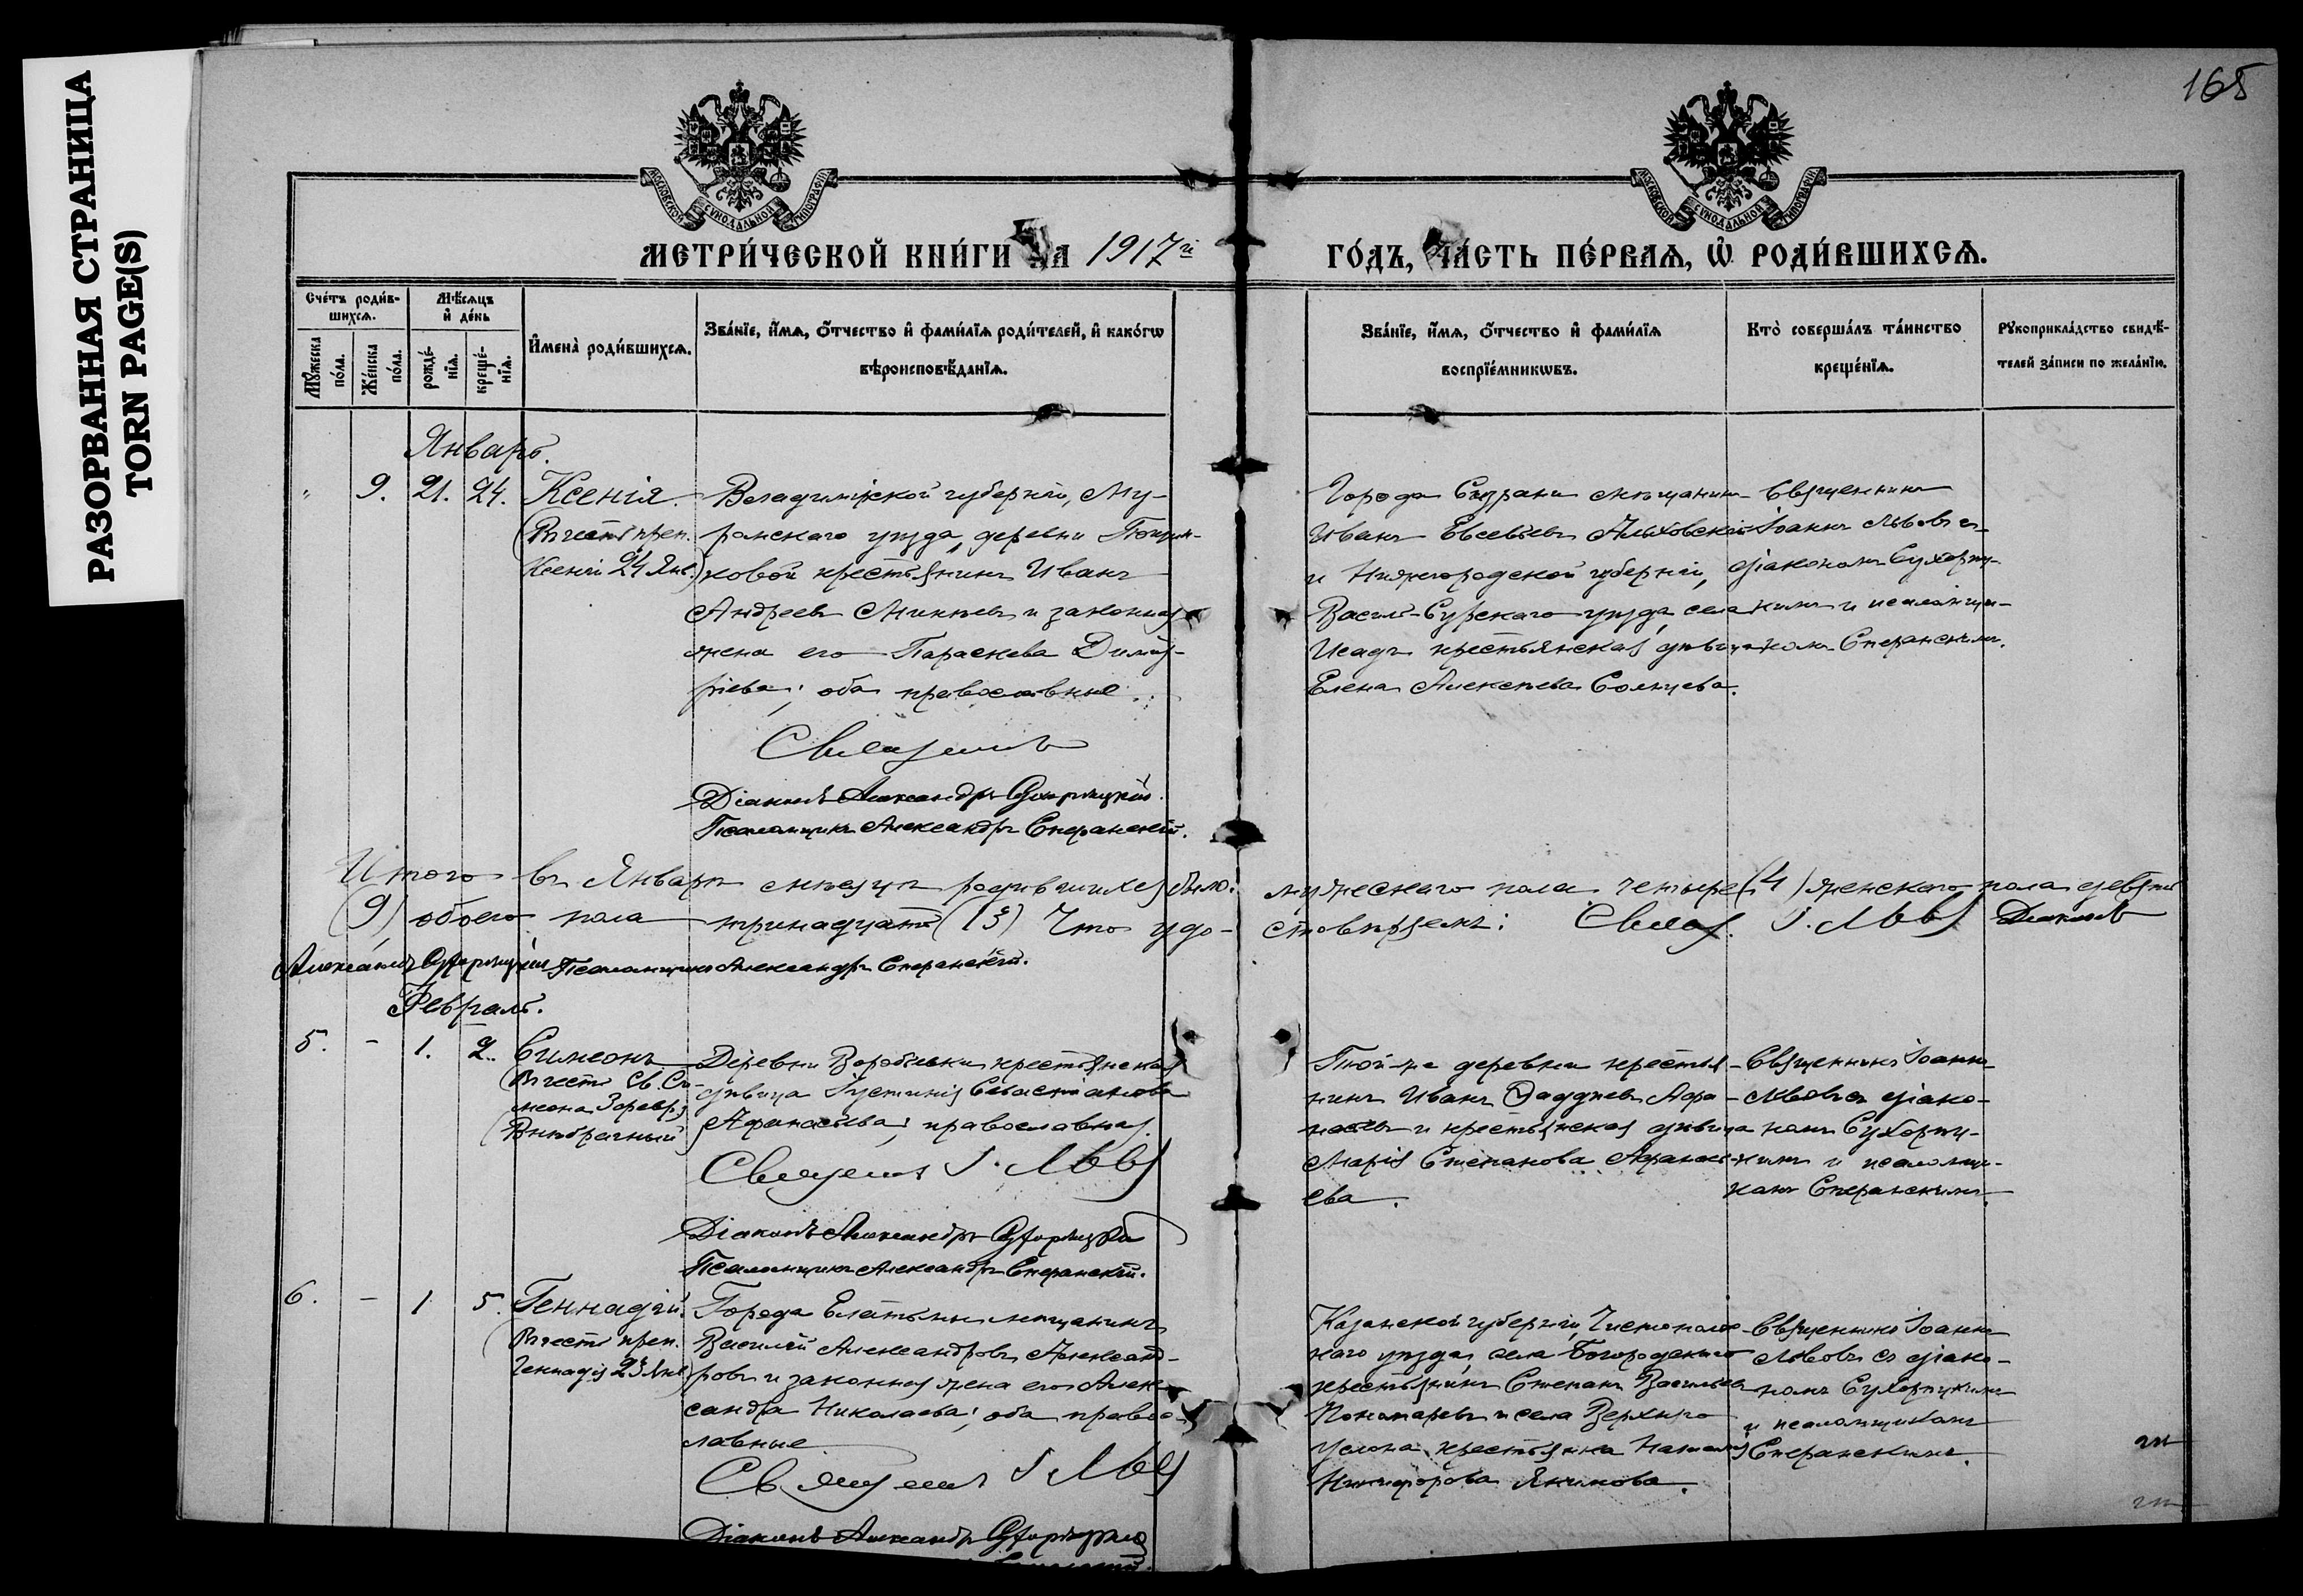 РАЗОРВАННАЯ СТРАНИЦА
TORN PAGE(S)
165
МОСКОВСКОЙ СУНОДАЛЬНОЙ ТИПОГРАФІИ
МОСКОВСКОЙ СУНОДАЛЬНОЙ ТИПОГРАФІИ
МЕТРИ́ЧЕСКОЙ КНИ́ГИ НА 1917й
ГО́ДЪ, ЧА́СТЬ ПЕ́РВАѦ, Ѽ РОДИ́ВШИХСѦ.
Сче́тъ роди́в-
шихсѧ.
Мꙋжеска
по́ла.
Же́нска
по́ла.
Мѣ́сѧцъ
и҆ де́нь
рожде́-
нїѧ.
креще́-
нїѧ.
И҆мена̀ роди́вшихсѧ.
Зва́нїе, и҆́мѧ, о҆́тчество и҆ фами́лїѧ роди́телей, и҆ како́гѡ
вѣроисповѣ́данїѧ.
Зва́нїе, и҆́мѧ, о҆́тчество и҆ фами́лїѧ
воспрїе́мникѡвъ.
Кто̀ соверша́лъ та́инство
креще́нїѧ.
Рꙋкоприкла́дство свидѣ́-
телей за́писи по жела́нїю.
Январь.
" 9. 21. 24.
Ксенія.
(Въ честь преп.
Ксеніи 24 Янв.)
Владимірской губерніи, Му-
ромскаго уѣзда, деревни
ковой крестьянинъ Иванъ
Андреевъ Микѣевъ и законная
жена его Параскева Димит-
ріева; оба православные.
Священникъ
Діаконъ Александръ
Псаломщикъ Александръ Сперанскій.
Города Сызрани мѣщанинъ
Иванъ Евсевьевъ
и Нижегородской губерніи,
Василь-Сурскаго уѣзда, села
Исадъ крестьянская дѣвица
Елена Алексѣева Солнцева.
Священникъ
Іоаннъ Львовъ съ
діакономъ
и псаломщи-
комъ Сперанскимъ.
Итого въ Январѣ мѣсяцѣ родившихся было: мужескаго пола четыре (4) женскаго пола девять
(9) обоего пола тринадцать (13) Что удо-стовѣряемъ: Свящ. І. Львовъ Діаконъ
Александръ Псаломщикъ Александръ Сперанскій.
Февраль.
5. - 1. 2.
Симеонъ
(Въ честь Св. Си-
меона 3 февр.)
(Внѣбрачный)
Деревни Воробьевки крестьянская
дѣвица Іустинія Севастіанова
Афанасьева; православная.
Священникъ І. Львовъ
Діаконъ Александръ
Псаломщикъ Александръ Сперанскій.
Той-же деревни крестья-
нинъ Иванъ Ѳаддеевъ Афа-
насьевъ и крестьянская дѣвица
Марія Степанова Афанась-
ева.
Священникъ Іоаннъ
Львовъ съ діако-
номъ
и псаломщи-
комъ Сперанскимъ.
6. - 1 5.
Геннадій.
(Въ честь преп.
Геннадія 23 Янв.)
Города Елатьмы мѣщанинъ
Василій Александровъ Александ-
ровъ и законная жена его Алек-
сандра Николаева; оба правос-
лавные
Священникъ І Львовъ
Діаконъ Александръ
Казанской губерніи, Чистополь-
наго уѣзда, села Богородскаго
крестьянинъ Степанъ Васильевъ
Пономаревъ и села Верхняго
Услона крестьянка Наталія
Никифорова Якимова.
Священникъ Іоаннъ
Львовъ съ діако-
номъ
и псаломщикомъ
Сперанскимъ.